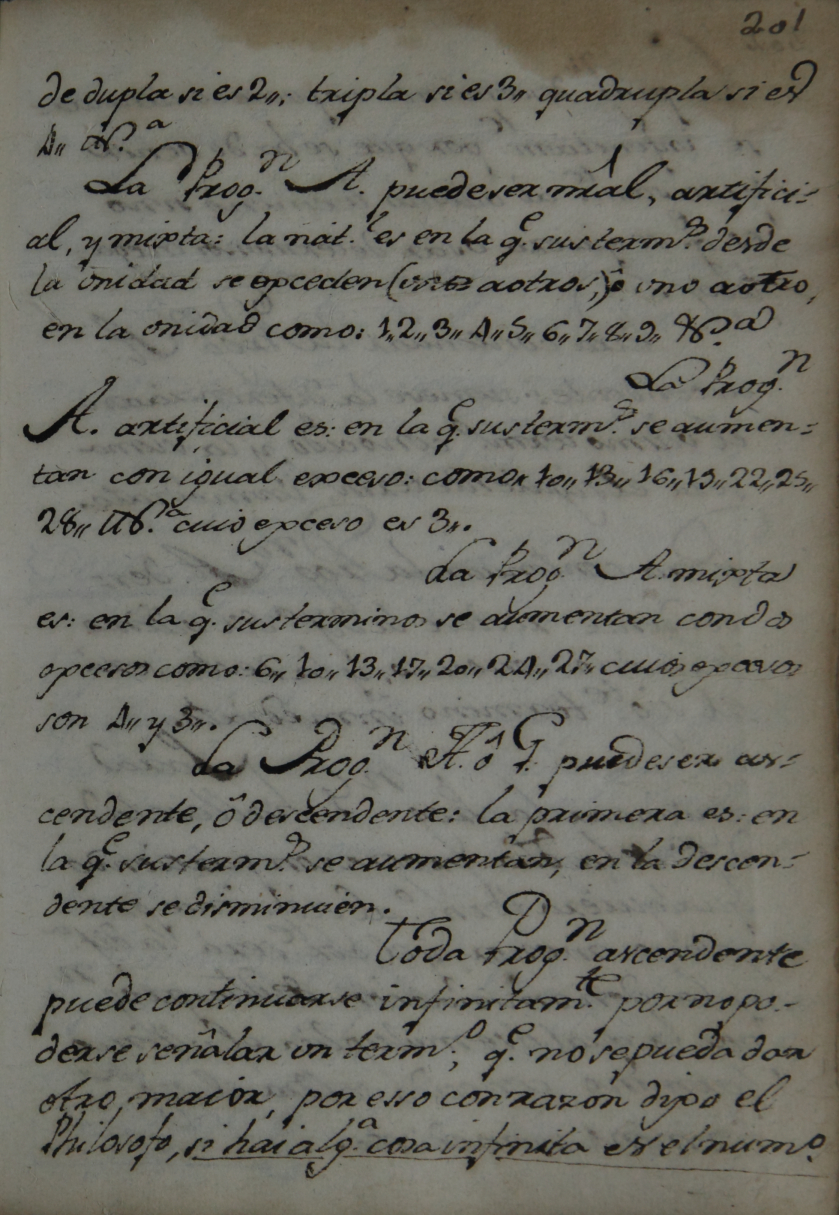 201
de dupla si es 2,,: tripla si es 3,, quadrupla si es
4,, &c.ª
La Prog.n A. puede ser nr̃al, artifici-
al, y mixta: la nat.l es en la q.e sus term.s desde
la vnidad se exceden (vnos aotros,) ô vno aotro,
en la vnidad como: 1,, 2,, 3,, 4,, 5,, 6,, 7,, 8,, 9,, &c.ª
La Prog.n
A. artificial es: en la q.e sus term.s se aumen-
tan con igual exceso: como: 10,, 13,, 16,, 19,, 22,, 25,,
28,, &c.ª cuio exceso es 3,,.
La Prog.n A. mixta
es: en la q.e sus terminos se aumentan con dos
excesos como: 6,, 10,, 13,, 17,, 20,, 24,, 27,, cuios excesos
son 4,, y 3,,.
La Prog.n A. ô G. puede ser as-
cendente, ô descendente: la primera es: en
la q.e sus term.s se aumentan, en la descen-
dente se disminuien.
Toda Prog.n ascendente
puede continuarse infinitam.te por no po-
derse señalar vn term.o, q.e no se pueda dar
otro maior, por esso con razon dixo el
Philosofo, si hai alg.a cosa infinita es el num.o